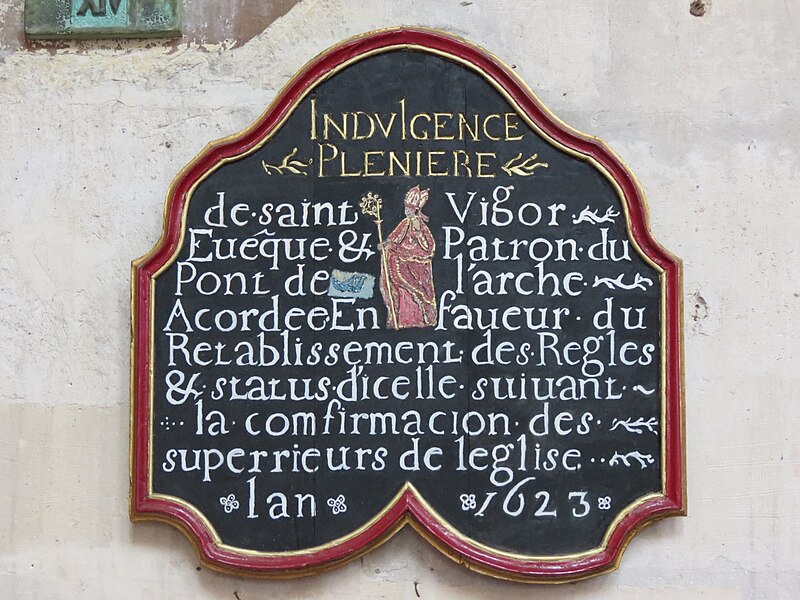 XIV
INDVLGENCE
PLENIERE
de·saint Vigor
Eueq̃ue·& Patron·du
Pont de l'arche
Acordee·En faueur·du
Retablissement·des·Regles
&·status·d'icelle·suiuant·~
la·comfirmacion·des·
superrieurs de leglise··
lan 1623